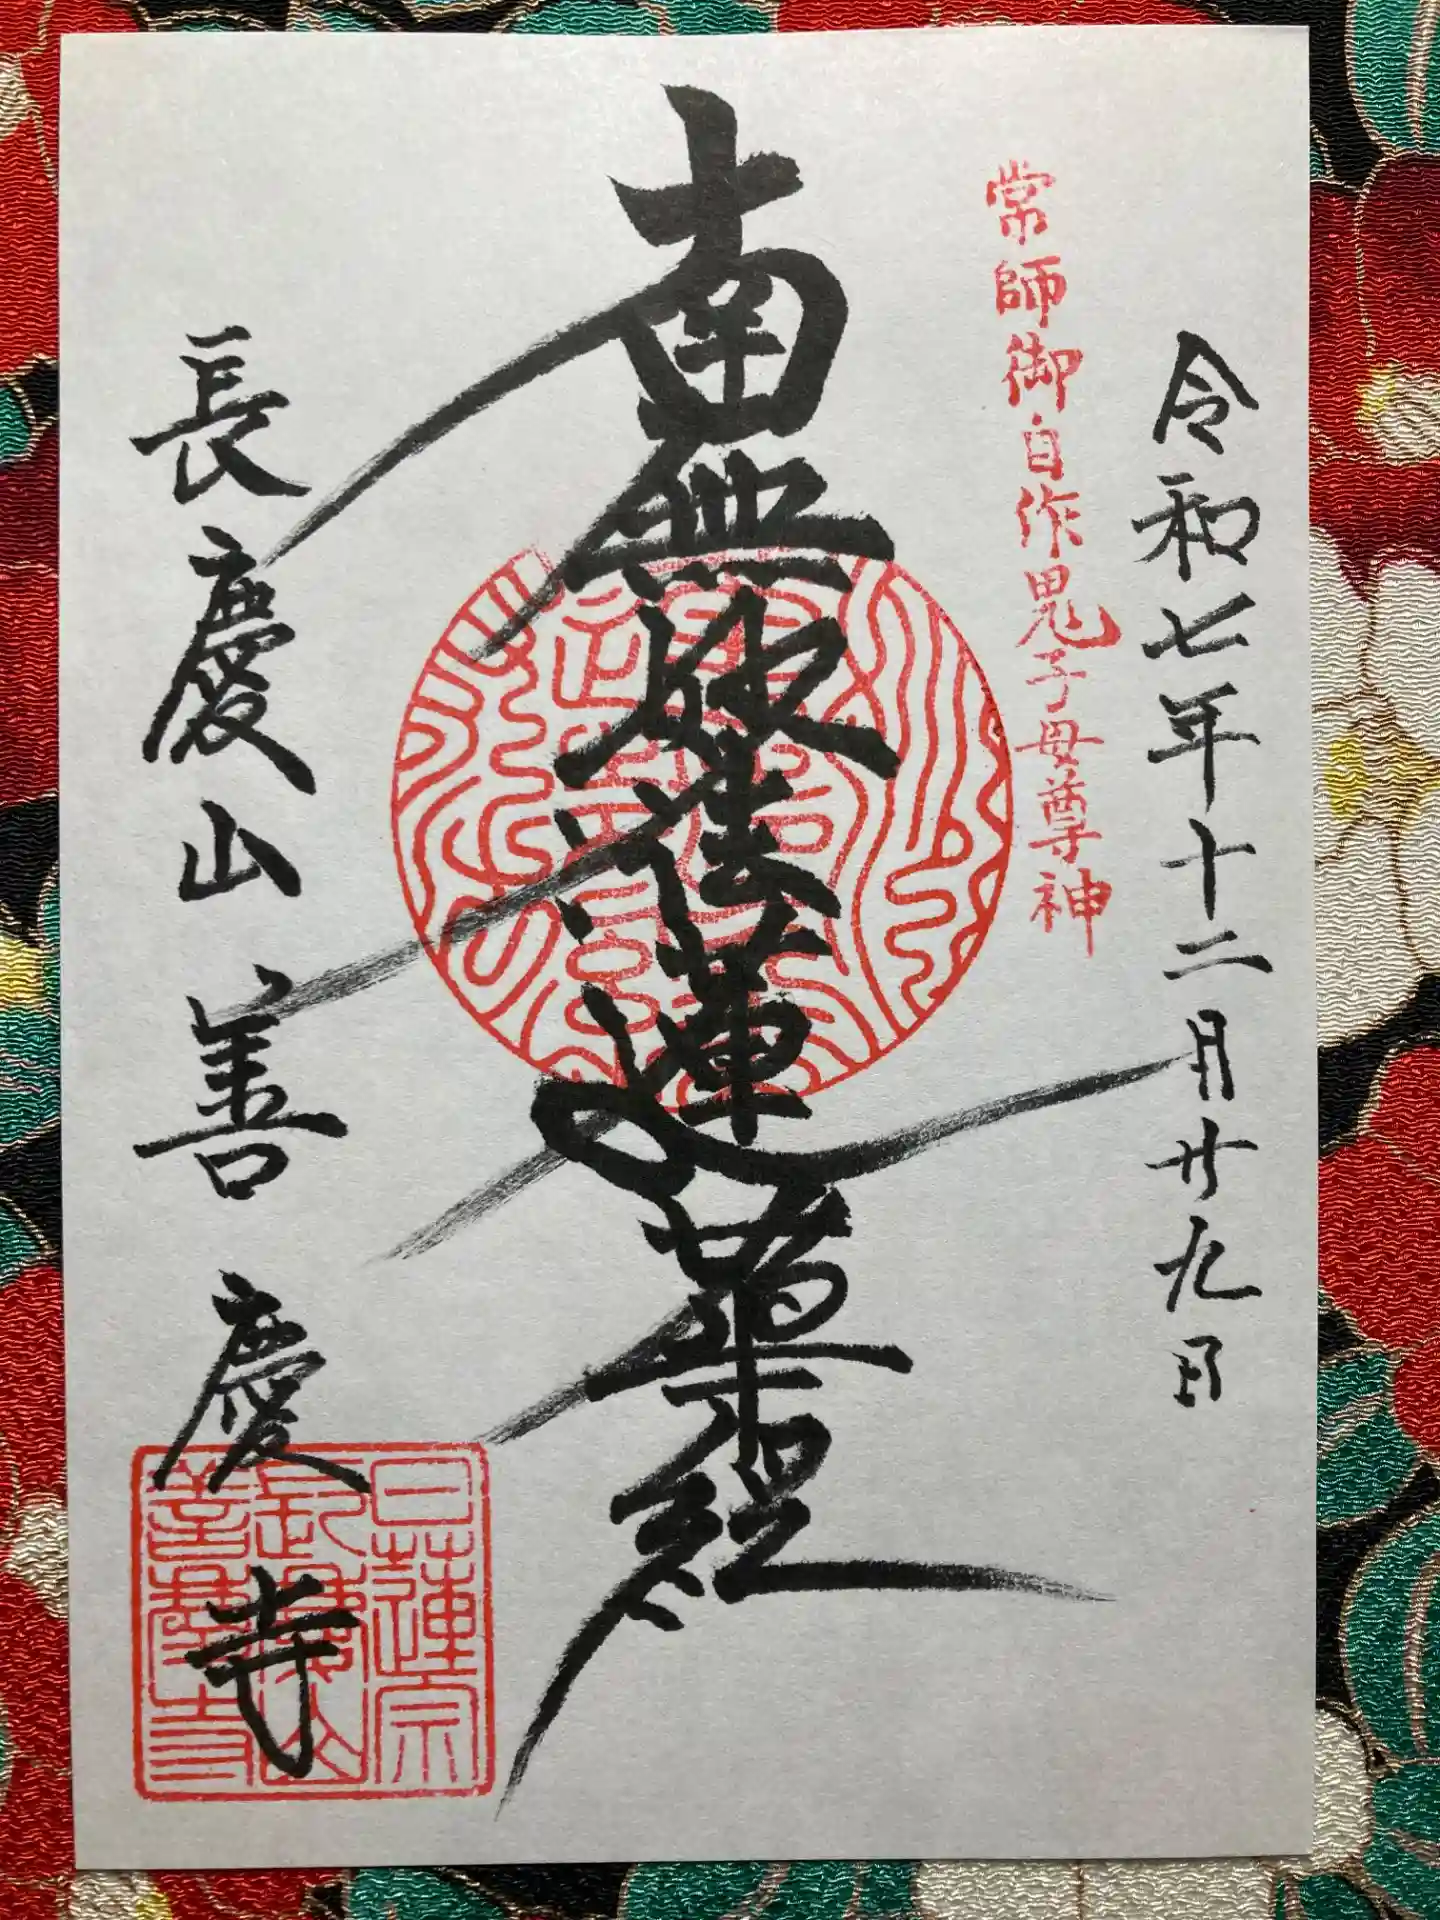 令和七年十二月廿九日
常師御自作鬼子母尊神
南無妙法蓮華経
長慶山善慶寺
日蓮宗
長慶山
善慶寺